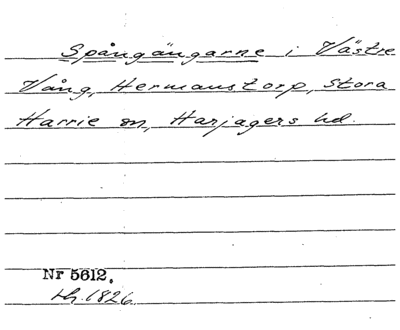 Spångängarne i Västre
Vång, Hermanstorp, Stora
Harrie sn, Harjagers hd.
Nr 5612.
1826